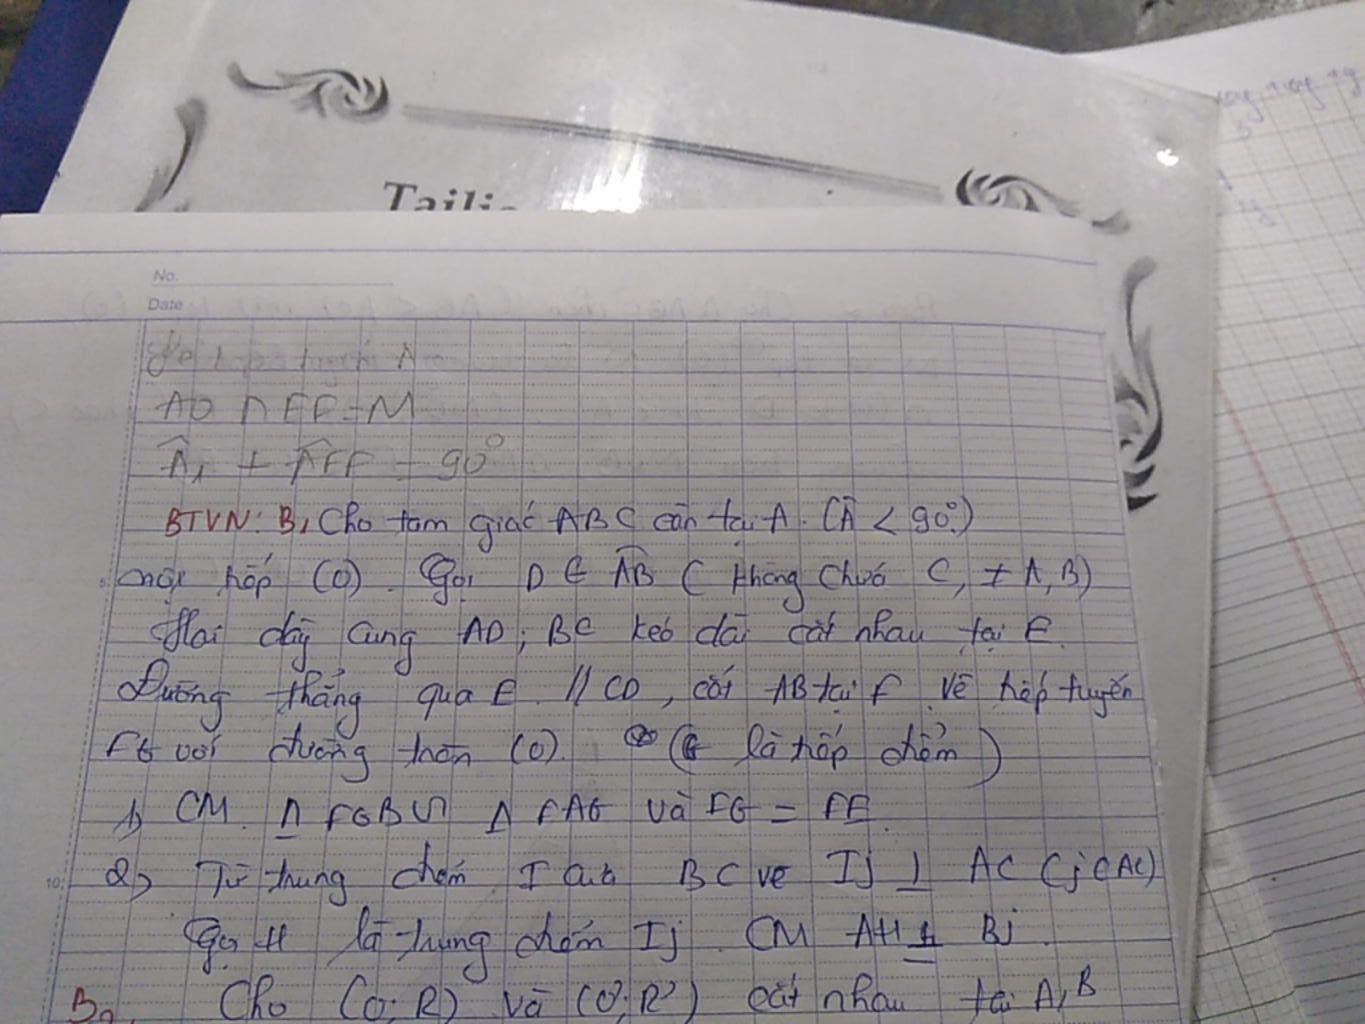 Tailie
No.
Date
AD ∩ EF = M
Â₁ + AEF = 90°
BTVN: B₁ Cho tam giác ABC cân tại A. (Â < 90°)
nội tiếp (O). Gọi D ∈ AB ( không chứa C, ≠ A, B)
Hai dây cung AD; BC kéo dài cắt nhau tại E.
Đường thẳng qua E // CD, cắt AB tại F. Vẽ tiếp tuyến
FG với đường tròn (O). (G là tiếp điểm)
1) CM. Δ FGB ∽ Δ FAG và FG = FE.
2) Từ trung điểm I của BC vẽ Ij ⊥ AC (j ∈ AC)
Gọi H là trung điểm Ij. CM AH ⊥ Bj.
10
B₂. Cho (O; R) và (O'; R') cắt nhau tại A, B